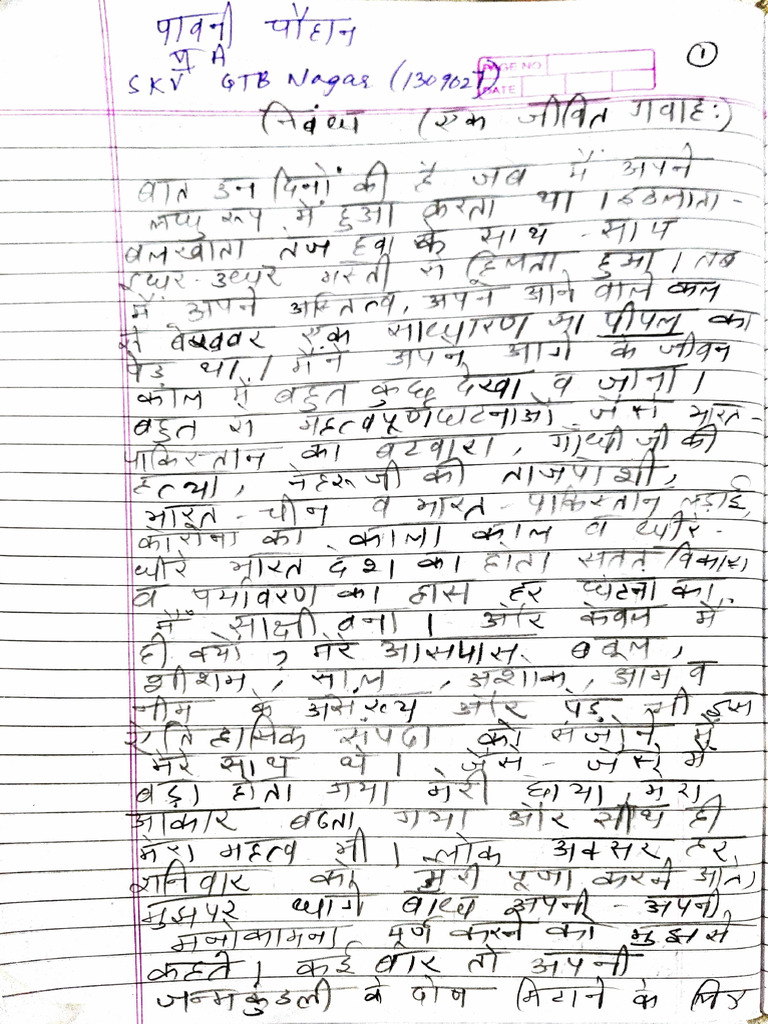 पावनी चौहान
①
VI A
PAGE NO
SKV GTB Nagar (1309027)
DATE
निबंध (एक जीवित गवाह:)
बात उन दिनों की है जब मैं अपने
लघु रूप में हुआ करता था । इठलाता-
बलखाता तेज हवा के साथ - साथ
इधर-उधर मस्ती से हिलता हुआ । तब
मैं अपने अस्तित्व, अपने आने वाले कल
से बेखबर एक साधारण सा पीपल का
पेड़ था । मैंने अपने आगे के जीवन
काल में बहुत कुछ देखा व जाना ।
बहुत सी महत्वपूर्ण घटनाओं जैसे भारत-
पाकिस्तान का बंटवारा, गाँधी जी की
हत्या, नेहरू जी की ताजपोशी,
भारत - चीन व भारत - पाकिस्तान लड़ाई,
कोरोना का काला काल व धीरे-
धीरे भारत देश का होता सतत विकास
व पर्यावरण का ह्रास हर घटना का
मैं साक्षी बना । और केवल मैं
ही क्यों ? मेरे आसपास बबूल,
शीशम, साल, अशोक, आम व
नीम के असंख्य और पेड़ भी इस
ऐतिहासिक संपदा को संजोने में
मेरे साथ थे । जैसे - जैसे मैं
बड़ा होता गया मेरी छाया, मेरा
आकार बढता गया और साथ ही
मेरा महत्व भी । लोक अक्सर हर
शनिवार को मेरी पूजा करने आते।
मुझपर धागे बांध अपनी - अपनी
मनोकामना पूर्ण करने का मुझसे
कहते । कई बार तो अपनी
जन्मकुंडली के दोष मिटाने के लिए